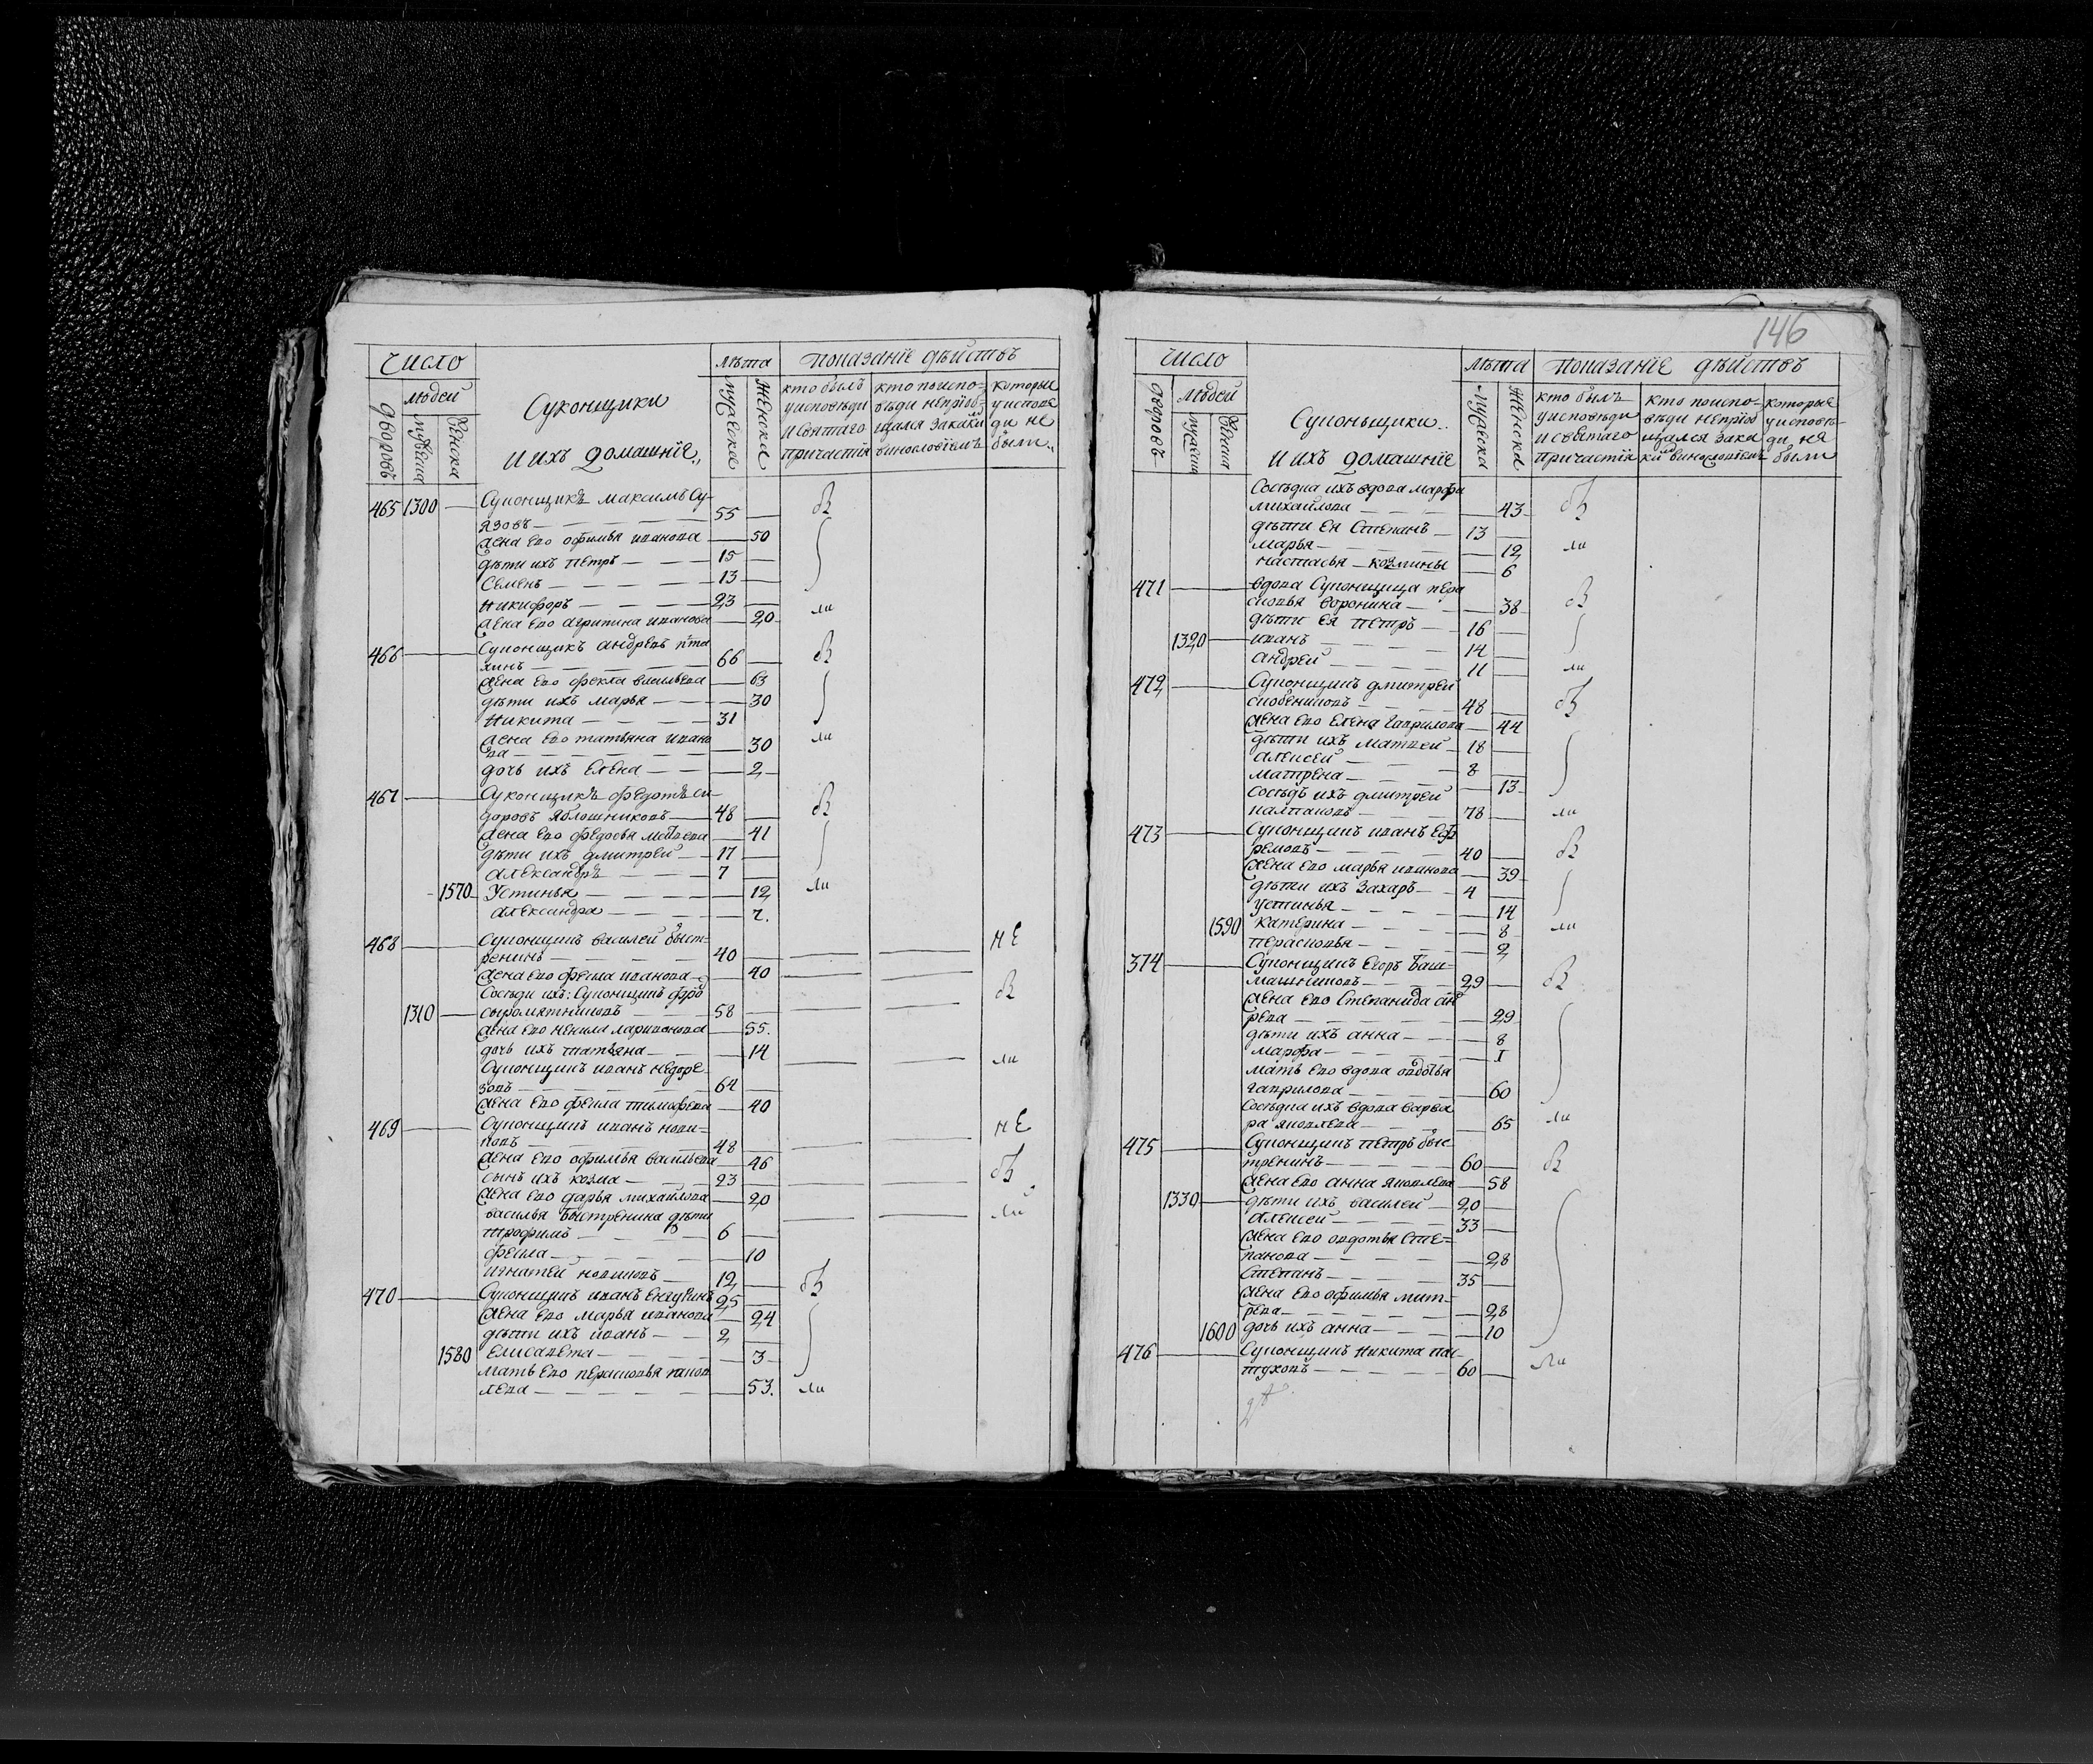 Число лѣта показаніе дѣйствъ
дворовъ людей мужеска женска
Суконщики
и ихъ домашніе
мужеска женска
кто былъ у исповѣди и святаго причастія
кто по исповѣди не приоб-щался за каки винословіемъ
которые у исповеди не были
465 1300 — Суконщикъ максимъ Су-
язовъ — 55 — б
жена ево офимья иванова — 50
дѣти ихъ петръ — 15 —
Семенъ — 13 —
Никифоръ — 23 —
жена ево агрипина иванова — 20 ли
466 — Суконщикъ андревъ
66 — б
жена ево фекла васильева — 63
дѣти ихъ марья — 30
Никита — 31
жена ево татьяна ивано
ва — 30 ли
дочь ихъ елена — 2
467 — Суконщикъ федотъ си-
доровъ яблошниковъ — 48 — б
жена ево федосья — 41
дѣти ихъ дмитрей — 17 —
александръ — 7 —
1570 Устинья — 12 ли
александра — 7.
468 — Суконщикъ василей быст-
ренинъ — 40 — — — не
жена ево фекла иванова — 40 — —
Сосѣди ихъ: Суконщикъ б
1310 — сыромятниковъ — 58 — — —
жена ево ненила ларионова — 55.
дочь ихъ татьяна — 14 — — ли
Суконщикъ иванъ недоре-
зовъ — 64 —
жена ево фекла тимофева — 40
469 — Суконщикъ иванъ нови-
ковъ — 48 — — — не
жена ево офимья васильева — 46
сынъ ихъ козма — 23 — — — б
жена ево дарья михайлова — 20
василья быстренина дѣти — — ли
трофимъ — 6 —
фекла — 10
игнатей новиковъ — 12 —
470 — Суконщикъ иванъ 25 — б
жена ево марья иванова — 24
дѣти ихъ иванъ — 2 —
1580 елисавета — 3
мать ево перасковья яков
лева — 53. ли
146
Число лѣта показаніе дѣйствъ
дворовъ людей мужеска женска
Суконьщики
и ихъ домашніе
мужеска женска
кто былъ у исповѣди и святаго причастія
кто по испо-вѣди не приоб щался за ка кимъ винословіемъ
которые у исповѣ-ди не были
Сосѣдка ихъ вдова марфа
михайлова — 43 б
дѣти ея Степанъ — 13 —
марья — 12 ли
настасья козмины — 6
471 — вдова Суконщица пера
сковья воронина — 38 б
дѣти ея петръ — 16 —
1320 — иванъ — 14 —
андрей — 11 — ли
472 — Суконщикъ дмитрей
48 — б
жена ево елена гаврилова — 44
дѣти ихъ матвей — 18
алексей — 8 —
матрена — 13
сосѣдъ ихъ дмитрей
78 — ли
473 — Суконщикъ иванъ еф
ремовъ — 40 — б
жена ево марья иванова — 39
дѣти ихъ захаръ — 4 —
устинья — 14
1590 катерина — 8 ли
перасковья — 2
374 — Суконщикъ егоръ баш-
машниковъ — 29 — б
жена ево Степанида ан
рева — 29
дѣти ихъ анна — 8
марфа — 1
мать ево вдова авдотья
гаврилова — 60
сосѣдка ихъ вдова варва
ра яковлева — 65 ли
475 — Суконщикъ петръ быс
тренинъ — 60 — б
жена ево анна яковлева — 58
1330 — дѣти ихъ василей — 20 —
алексей — 33 —
жена ево авдотья Сте=
панова — 28
Степанъ — 35 —
жена ево офимья мит-
рева — 28
1600 дочь ихъ анна — 10
476 — Суконщикъ никита пас
туховъ — 60 — ли